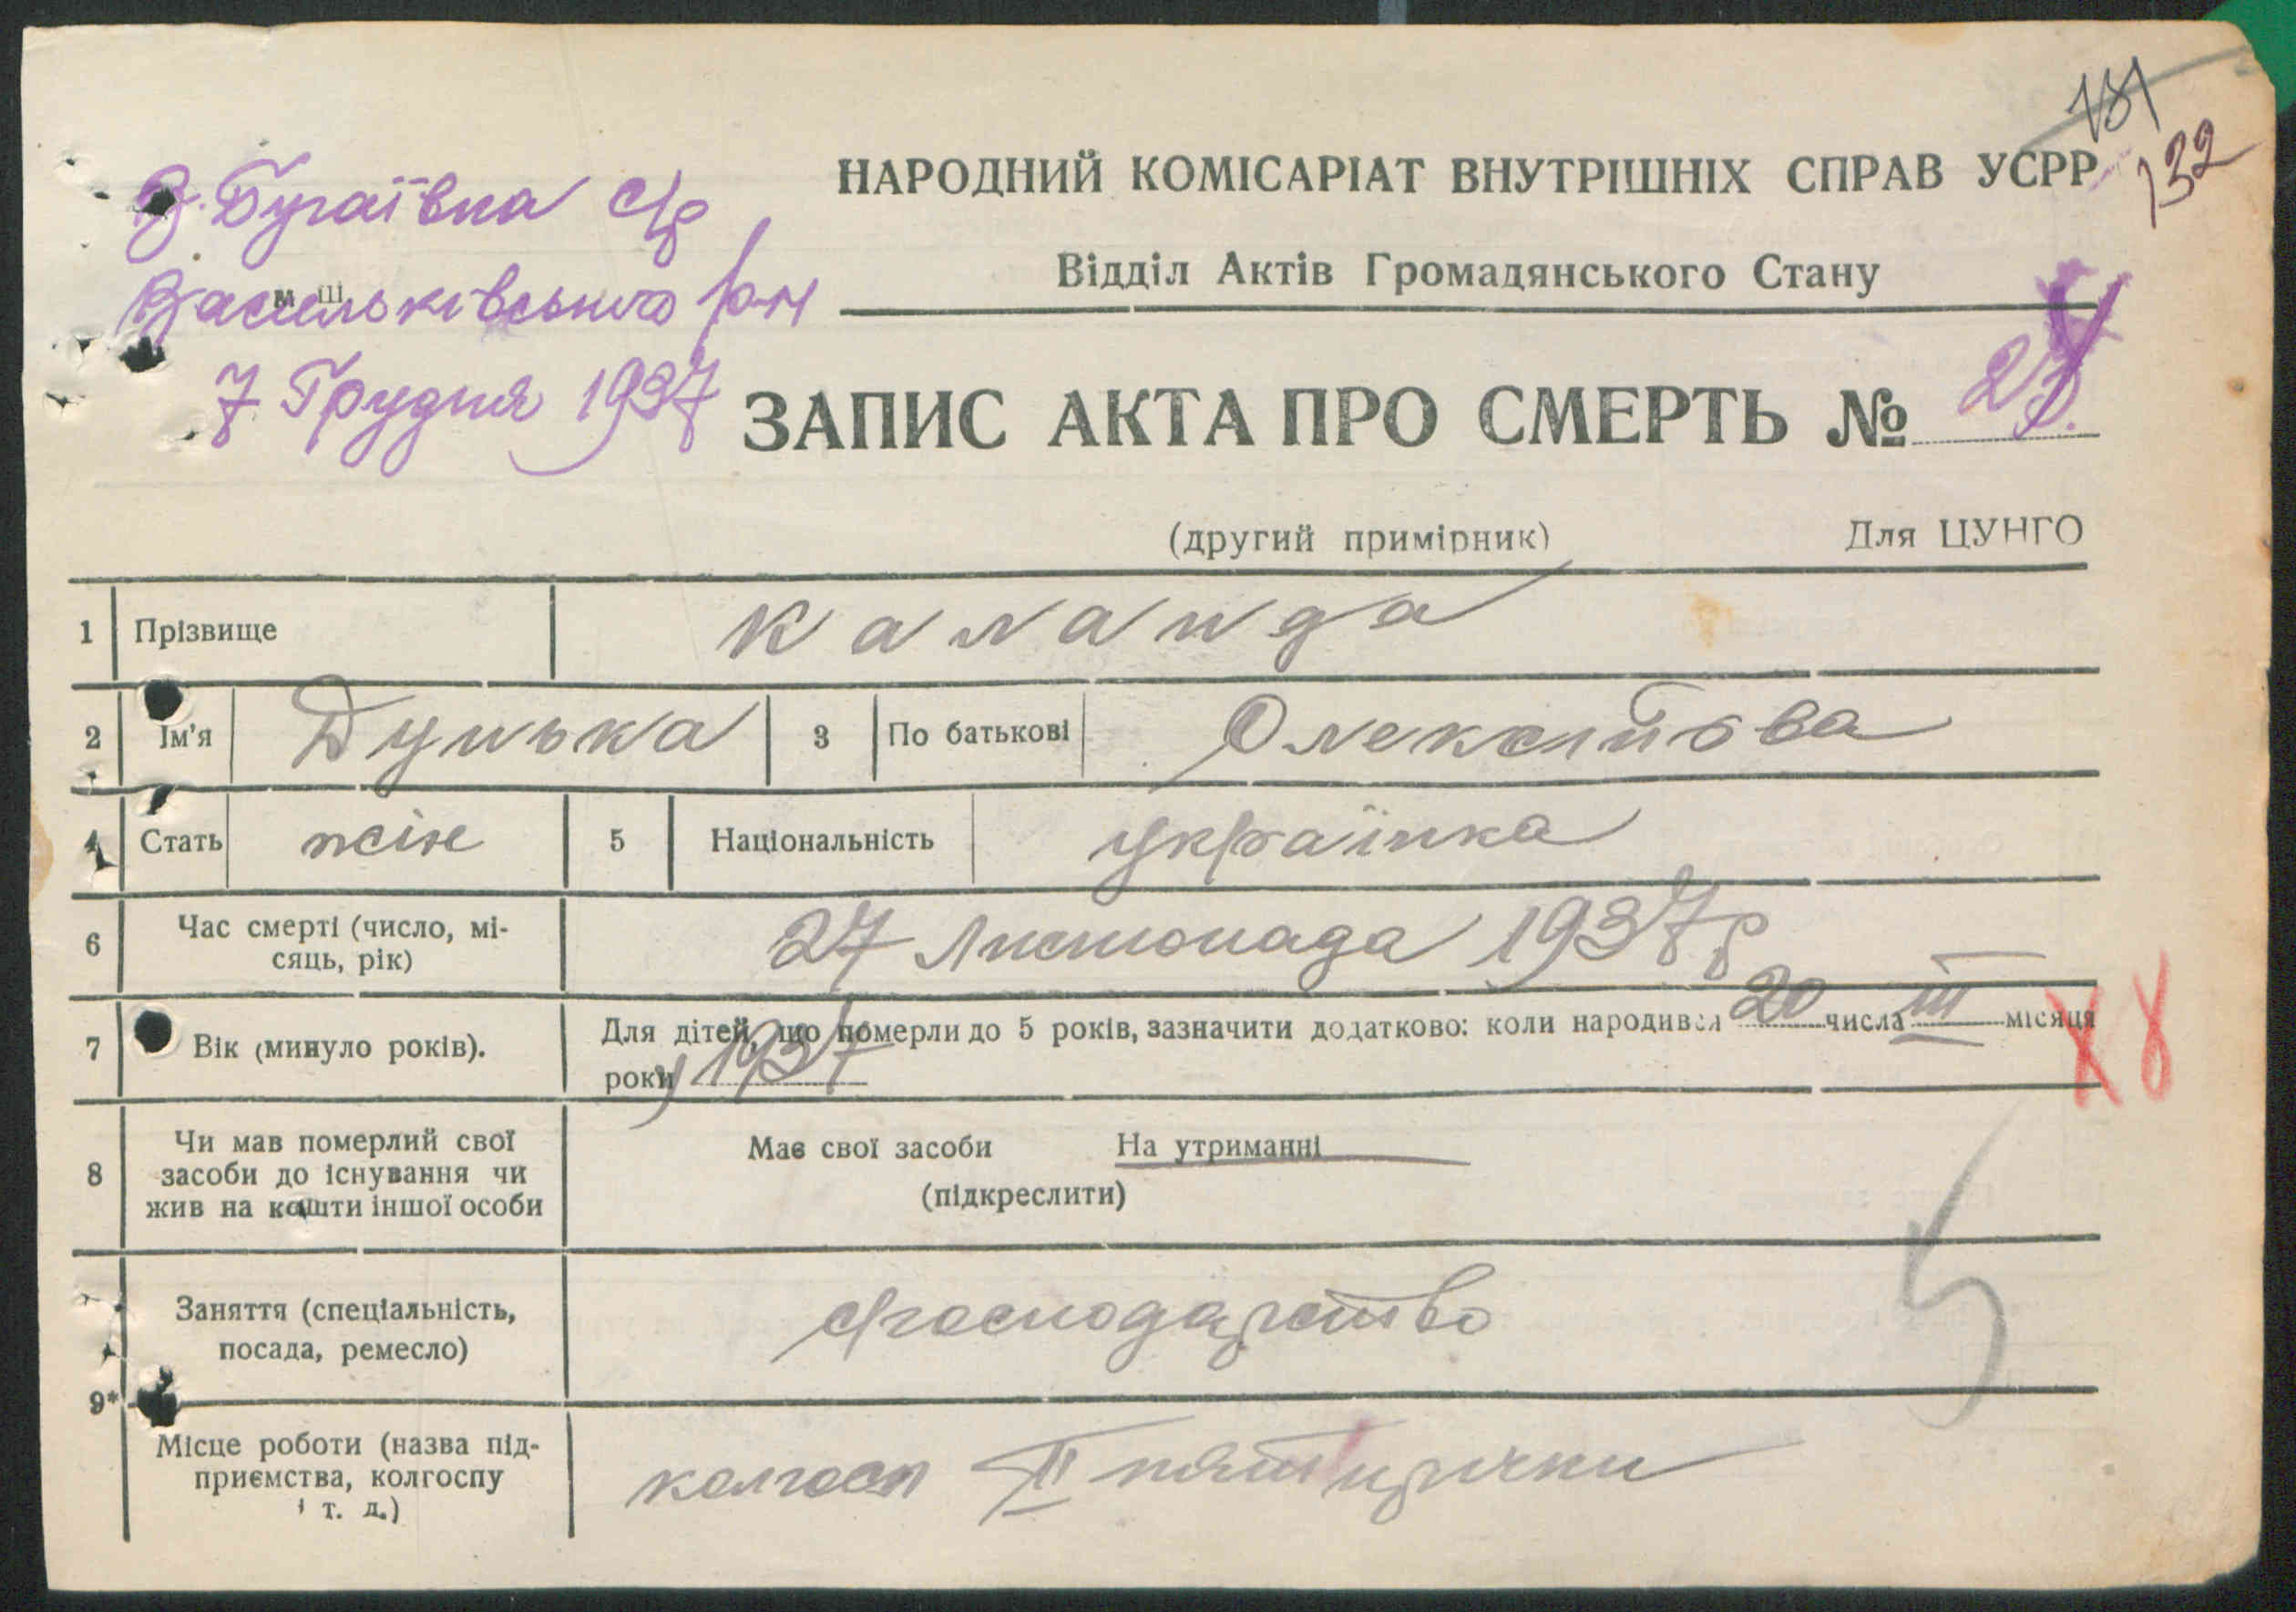 181
132
В. Бугаївка с/р
НАРОДНИЙ КОМІСАРІАТ ВНУТРІШНІХ СПРАВ УСРР
Відділ Актів Громадянського Стану
м. Ш.
Васильківського р-н
7 Грудня 1937
ЗАПИС АКТА ПРО СМЕРТЬ №
(другий примірник) Для ЦУНГО
1 Прізвище Каланда
2 Ім'я Дунька 3 По батькові Олексіївва
4 Стать жін 5 Національність українка
6 Час смерті (число, мі-
сяць, рік) 27 Листопада 1937 р
7 Вік (минуло років). Для дітей, що померли до 5 років, зазначити додатково: коли народився 20 числа III місяця
роки 1937
8
8 Чи мав померлий свої
засоби до існування чи
жив на кошти іншої особи
Має свої засоби На утриманні
(підкреслити)
Заняття (спеціальність,
посада, ремесло) господарство
9*
Місце роботи (назва під-
приємства, колгоспу
і т. д.) колгосп II пятирічки